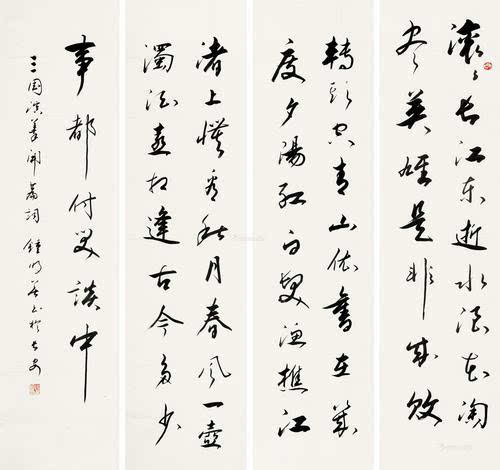 滚滚长江东逝水浪花淘
尽英雄是非成败
轉头空青山依舊在几
度夕陽红白髮渔樵江
渚上惯看秋月春风一壺
濁酒喜相逢古今多少
事都付笑談中
三国演義開篇词 鐘明善书於长安